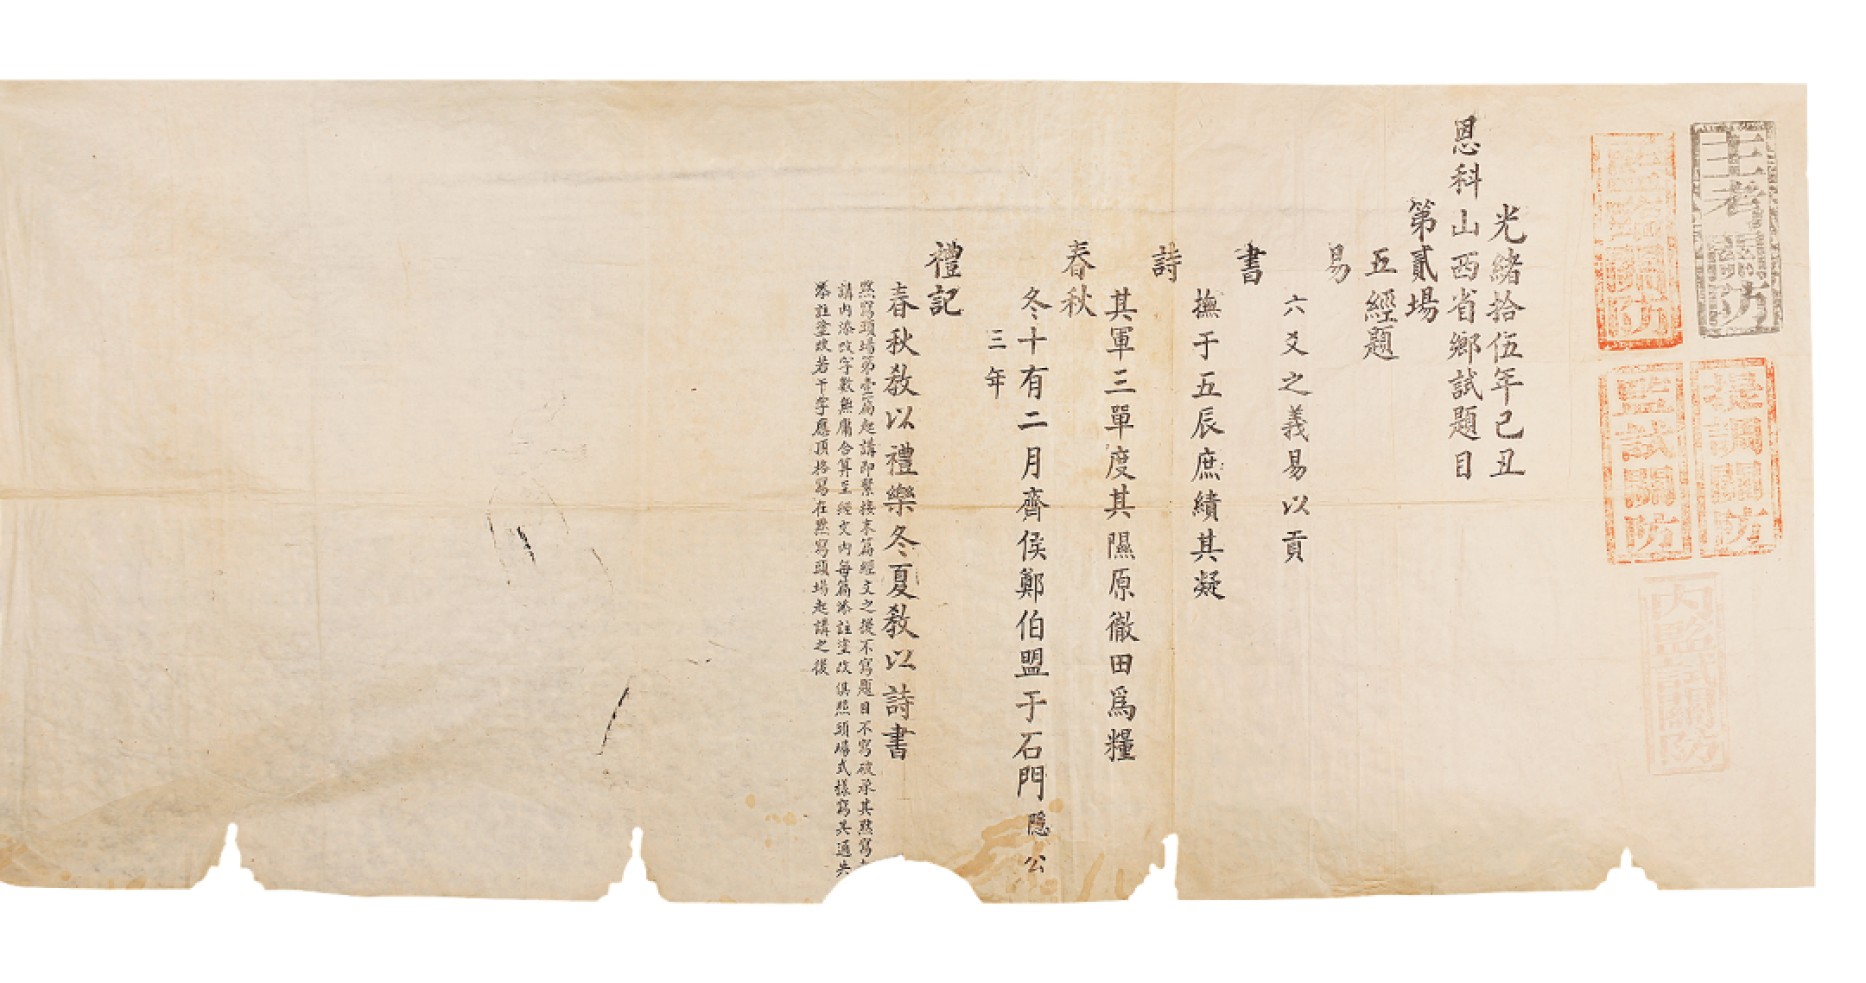 主考關防
監臨關防
提調關防
監試關防
內監試關防
光緒拾伍年己丑
恩科山西省鄉試題目
第貳場
五經題
易
六爻之義易以貢
書
撫于五辰庶績其凝
詩
其軍三單度其隰原徹田爲糧
春秋
冬十有二月齊侯鄭伯盟于石門隱公
三年
禮記
春秋敎以禮樂冬夏敎以詩書
默寫頭場第壹篇起講即緊接末篇經文之後不寫題目不寫破承其默寫
講內添改字數無庸合算至經文內每篇添註塗改俱照頭場式樣寫共通共
添註塗改若干字應頂格寫在默寫頭場起講之後